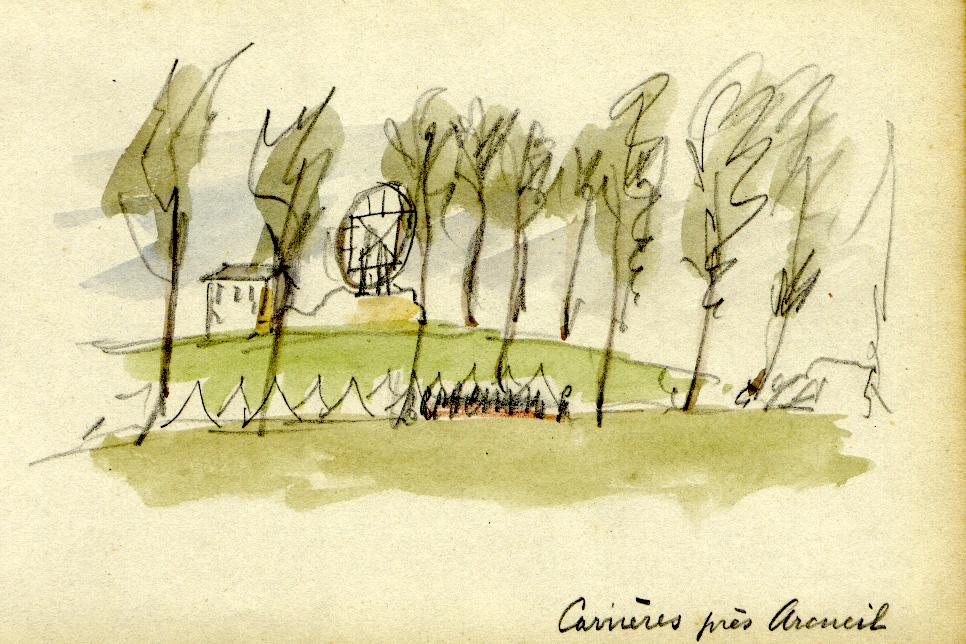 Carrières près Arcueil